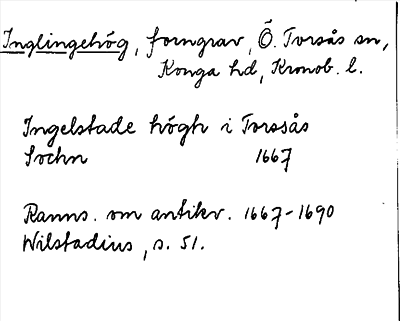 Inglingehög, forngrav, Ö. Torsås sn,
Konga hd, Kronob. l.
Ingelstade högh i Torssås
Sochn 1667
Ranns. om antikv. 1667-1690
Wilstadius, s. 51.